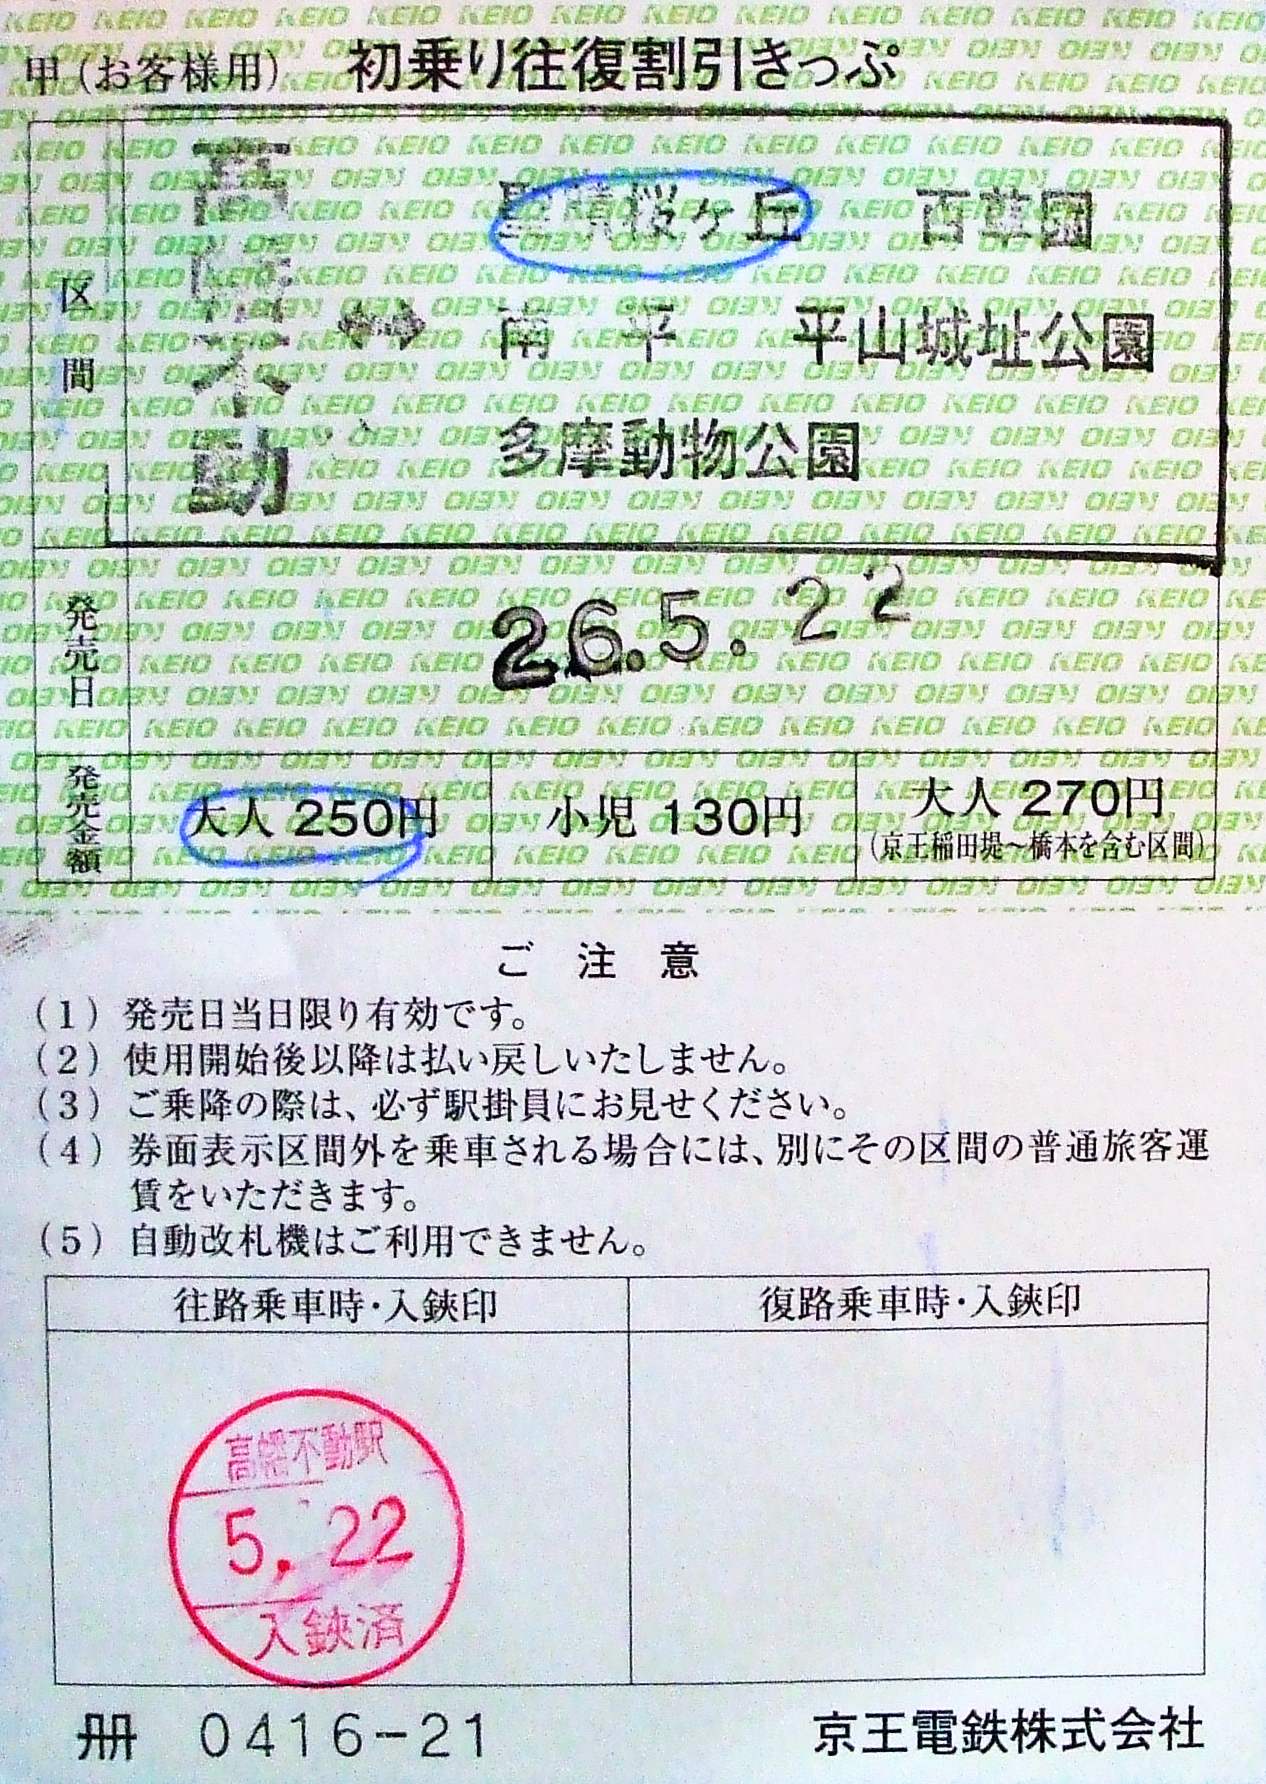 甲(お客様用) 初乗り往復割引きっぷ
区間
高幡不動 ⇔
聖蹟桜ヶ丘 百草園
南平 平山城址公園
多摩動物公園
発売日
26.5.22
発売金額
大人 250円 小児 130円 大人 270円
(京王稲田堤～橋本を含む区間)
ご注意
(1) 発売日当日限り有効です。
(2) 使用開始後以降は払い戻しいたしません。
(3) ご乗降の際は、必ず駅掛員にお見せください。
(4) 券面表示区間外を乗車される場合には、別にその区間の普通旅客運
賃をいただきます。
(5) 自動改札機はご利用できません。
往路乗車時・入鋏印 復路乗車時・入鋏印
高幡不動駅
5.22
入鋏済
冊 0416-21 京王電鉄株式会社